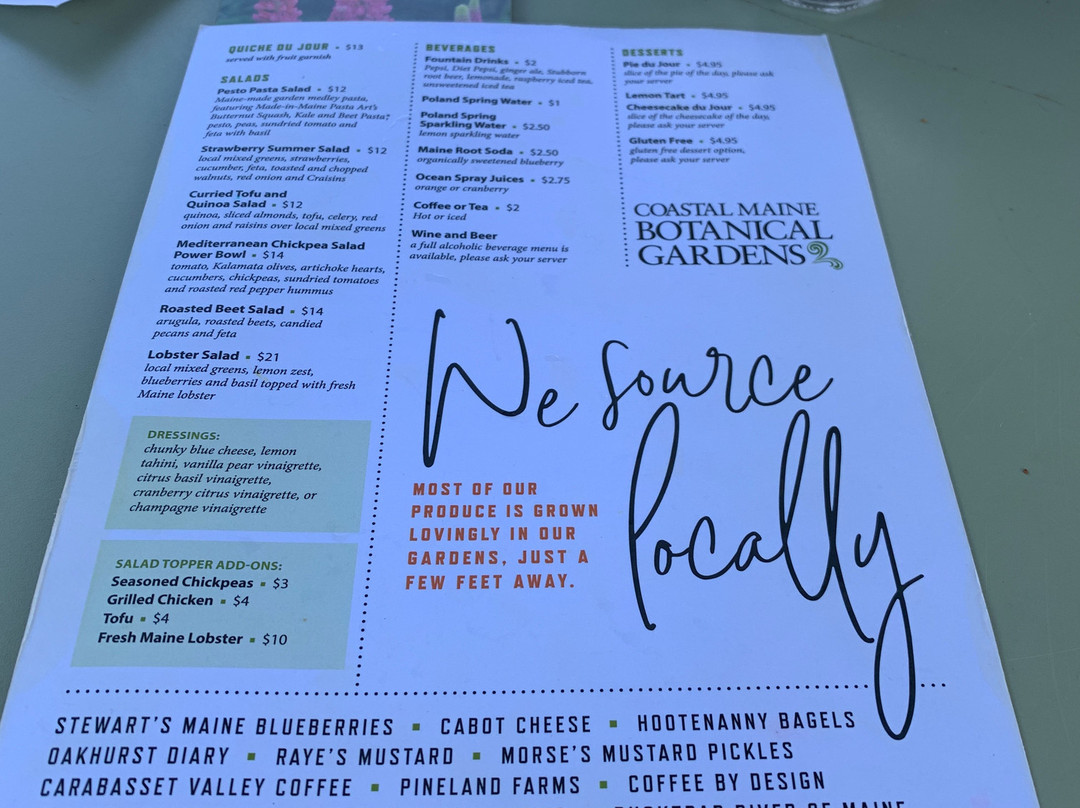 QUICHE DU JOUR ▪ $13
served with fruit garnish
SALADS
Pesto Pasta Salad ▪ $12
Maine-made garden medley pasta,
featuring Made-in-Maine Pasta Art's
Butternut Squash, Kale and Beet Pasta?
pesto, peas, sundried tomato and
feta with basil
Strawberry Summer Salad ▪ $12
local mixed greens, strawberries,
cucumber, feta, toasted and chopped
walnuts, red onion and Craisins
Curried Tofu and
Quinoa Salad ▪ $12
quinoa, sliced almonds, tofu, celery, red
onion and raisins over local mixed greens
Mediterranean Chickpea Salad
Power Bowl ▪ $14
tomato, Kalamata olives, artichoke hearts,
cucumbers, chickpeas, sundried tomatoes
and roasted red pepper hummus
Roasted Beet Salad ▪ $14
arugula, roasted beets, candied
pecans and feta
Lobster Salad ▪ $21
local mixed greens, lemon zest,
blueberries and basil topped with fresh
Maine lobster
DRESSINGS:
chunky blue cheese, lemon
tahini, vanilla pear vinaigrette,
citrus basil vinaigrette,
cranberry citrus vinaigrette, or
champagne vinaigrette
SALAD TOPPER ADD-ONS:
Seasoned Chickpeas ▪ $3
Grilled Chicken ▪ $4
Tofu ▪ $4
Fresh Maine Lobster ▪ $10
BEVERAGES
Fountain Drinks ▪ $2
Pepsi, Diet Pepsi, ginger ale, Stubborn
root beer, lemonade, raspberry iced tea,
unsweetened iced tea
Poland Spring Water ▪ $1
Poland Spring
Sparkling Water ▪ $2.50
lemon sparkling water
Maine Root Soda ▪ $2.50
organically sweetened blueberry
Ocean Spray Juices ▪ $2.75
orange or cranberry
Coffee or Tea ▪ $2
Hot or iced
Wine and Beer
a full alcoholic beverage menu is
available, please ask your server
DESSERTS
Pie du Jour ▪ $4.95
slice of the pie of the day, please ask
your server
Lemon Tart ▪ $4.95
Cheesecake du Jour ▪ $4.95
slice of the cheesecake of the day,
please ask your server
Gluten Free ▪ $4.95
gluten free dessert option,
please ask your server
COASTAL MAINE
BOTANICAL
GARDENS
We source
locally
MOST OF OUR
PRODUCE IS GROWN
LOVINGLY IN OUR
GARDENS, JUST A
FEW FEET AWAY.
STEWART'S MAINE BLUEBERRIES ▪ CABOT CHEESE ▪ HOOTENANNY BAGELS
OAKHURST DIARY ▪ RAYE'S MUSTARD ▪ MORSE'S MUSTARD PICKLES
CARABASSET VALLEY COFFEE ▪ PINELAND FARMS ▪ COFFEE BY DESIGN
RIVER OF MAINE